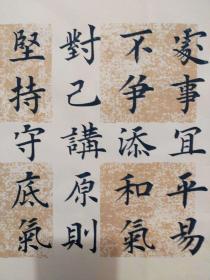 處事宜平易
不爭添和氣
對己講原則
堅持守底氣